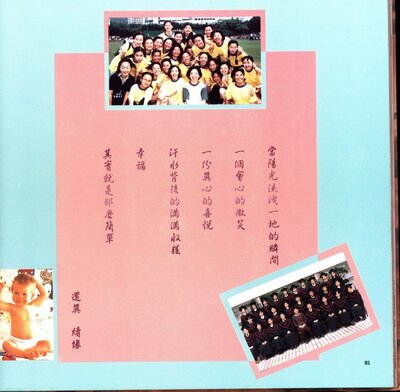 當陽光流洩一地的瞬間
一個會心的微笑
一份真心的喜悅
汗水背後的滿滿收穫
幸福
其實就是那麼簡單
還真 緒緣
81